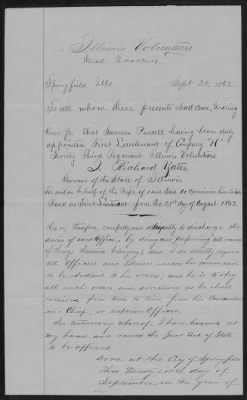 Illinois Volunteers
Head Quarters
Springfield Ills Sept 20, 1862
To all whom these presents shall come, Greeting
Know Ye that James Purcell having been duly
appointed First Lieutenant of Company "K"
Twenty Third Regiment Illinois Volunteers
I, Richard Yates,
Governor of the State of Illinois
for and on behalf of the People of said State do commission him to take
Rank as First Lieutenant from the 21st day of August 1862
He is, Therefore, carefully and diligently to discharge the
duties of said Office, by doing and performing all manner
of things thereunto belonging; and I do strictly require
all Officers and Soldiers under his command
to be obedient to his orders; and he is to obey
all such orders and directions as he shall
receive from time to time from his Commander
in Chief, or superior Officer.
In testimony whereof, I have hereunto set
my hand and caused the Great Seal of State
to be affixed
Done at the City of Springfield
this day of
September in the year of